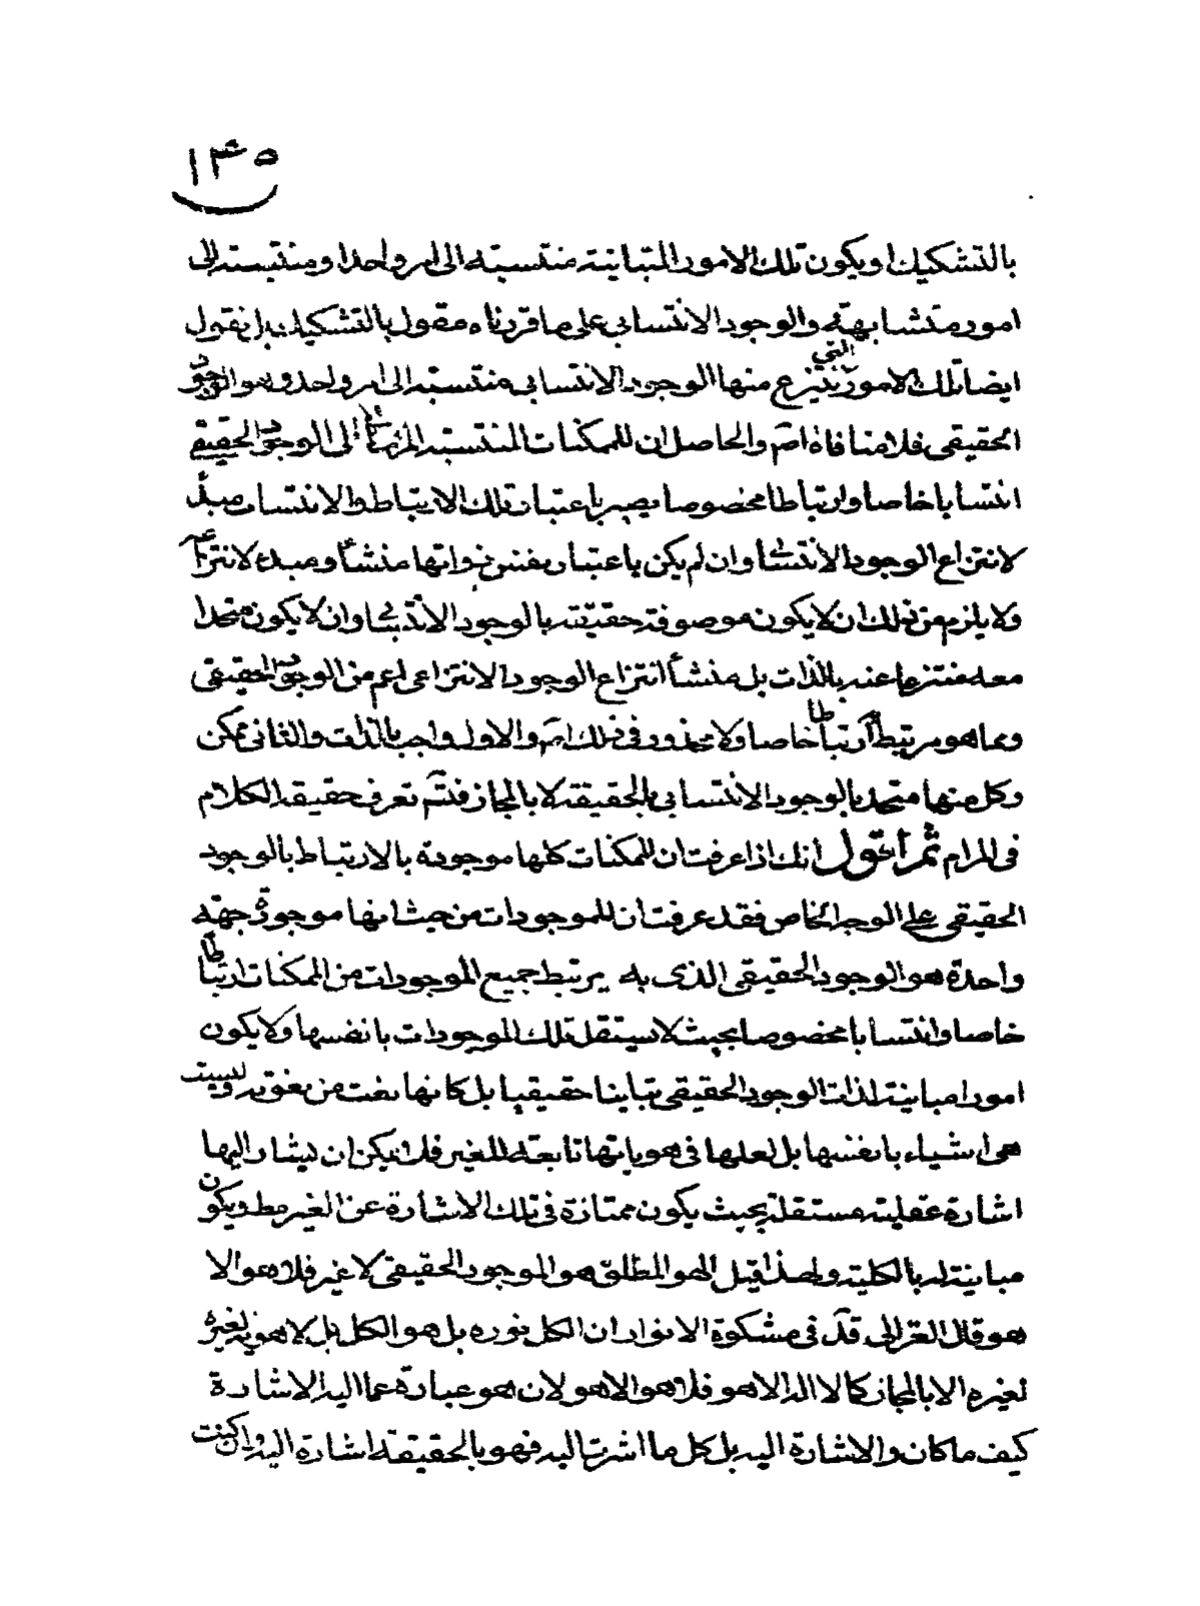 ١٣٥
بالتشكيك او يكون تلك الامور المتباينة منتسبته الى امر واحد او منتسبته الى
امور متشابهة والوجود الانتسابي على ما قررناه مقول بالتشكيك بل نقول
ايضا تلك الامور التي ينتزع منها الوجود الانتسابي منتسبته الى امر واحد وهو الوجود
الحقيقي فلا منافاة اصم والحاصل ان للممكنات المنتسبته المرتبطة الى الوجود الحقيقي
انتسابا خاصا وارتباطا مخصوصا يصير باعتبار تلك الارتباط والانتساب مبدأ
لانتزاع الوجود الانتسابي وان لم يكن باعتبار نفس ذواتها منشأ ومبدء لانتزاعه
ولا يلزم من ذلك ان لا يكون موصوفة حقيقة بالوجود الانتسابي وان لا يكون متحدا
معه منتزعا عنه بالذات بل منشأ انتزاع الوجود الانتزاعي اعم من الوجود الحقيقي
ومما هو مرتبط به ارتباطا خاصا ولا محذور في ذلك اصم والاول واجب بالذات والثاني ممكن
وكل منهما متحد بالوجود الانتسابي بالحقيقة لا بالمجاز فتم تعرف حقيقة الكلام
في المرام ثم أقول انك اذا عرفت ان للممكنات كلها موجودة بالارتباط بالوجود
الحقيقي على الوجه الخاص فقد عرفت ان للموجودات من حيث انها موجودة جهة
واحدة هو الوجود الحقيقي الذى به يرتبط جميع الموجودات من الممكنات ارتباطا
خاصا وانتسابا مخصوصا بحيث لا يستقل تلك الموجودات بانفسها ولا يكون
امورا مباينة لذات الوجود الحقيقي تباينا حقيقيا بل كانها نعت من نعوته وليست
هى اشياء بانفسها بل لعلها في هوياتها تابعة للغير فلا يمكن ان يشار اليها
اشارة عقلية مستقلة بحيث يكون ممتازة في تلك الاشارة عن الغير مط ويكون
مباينة له بالكلية ولهذا قيل الهو المطلق هو الموجود الحقيقي لا غير فلا هو الا
هو قال الغزالى قد في مشكوة الانوار ان الكل نوره بل هو الكل بل لا هوية لغيره
لغيره الا بالمجاز كما لا اله الا هو فلا هو الا هو لان هو عبارة عما اليه الاشارة
كيف ما كان والاشارة اليه بل كل ما اشرت اليه فهو بالحقيقة اشارة اليه وان كنت